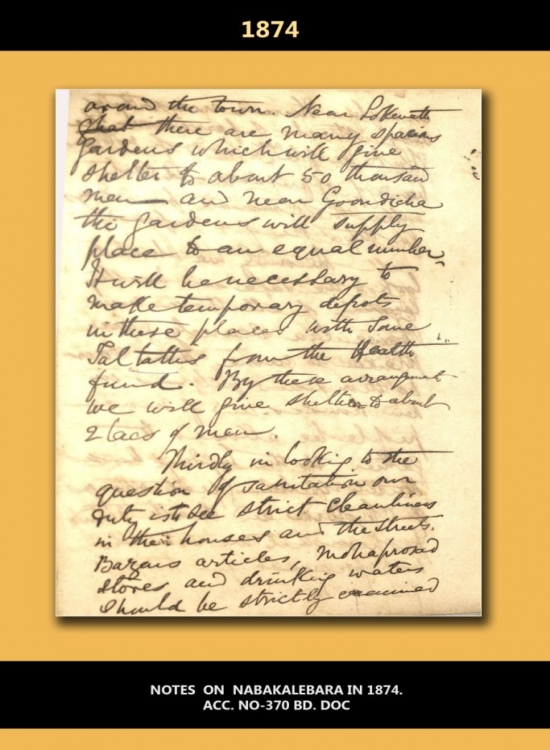 1874
around the town. Near Lokenath
that there are many spacious
gardens which will give
shelter to about 50 thousand
men and near Goondicha
the gardens will supply
place to an equal number.
It will be necessary to
make temporary depots
in these places with some
Tal tattis from the Health
fund. By these arrangements
we will give shelter to about
2 lacs of men.
Thirdly in looking to the
question of sanitation our
duty is to see strict cleanliness
in their houses and the streets.
Bazars articles, mohaprosad
stores and drinking waters
should be strictly examined
NOTES ON NABAKALEBARA IN 1874.
ACC. NO-370 BD. DOC